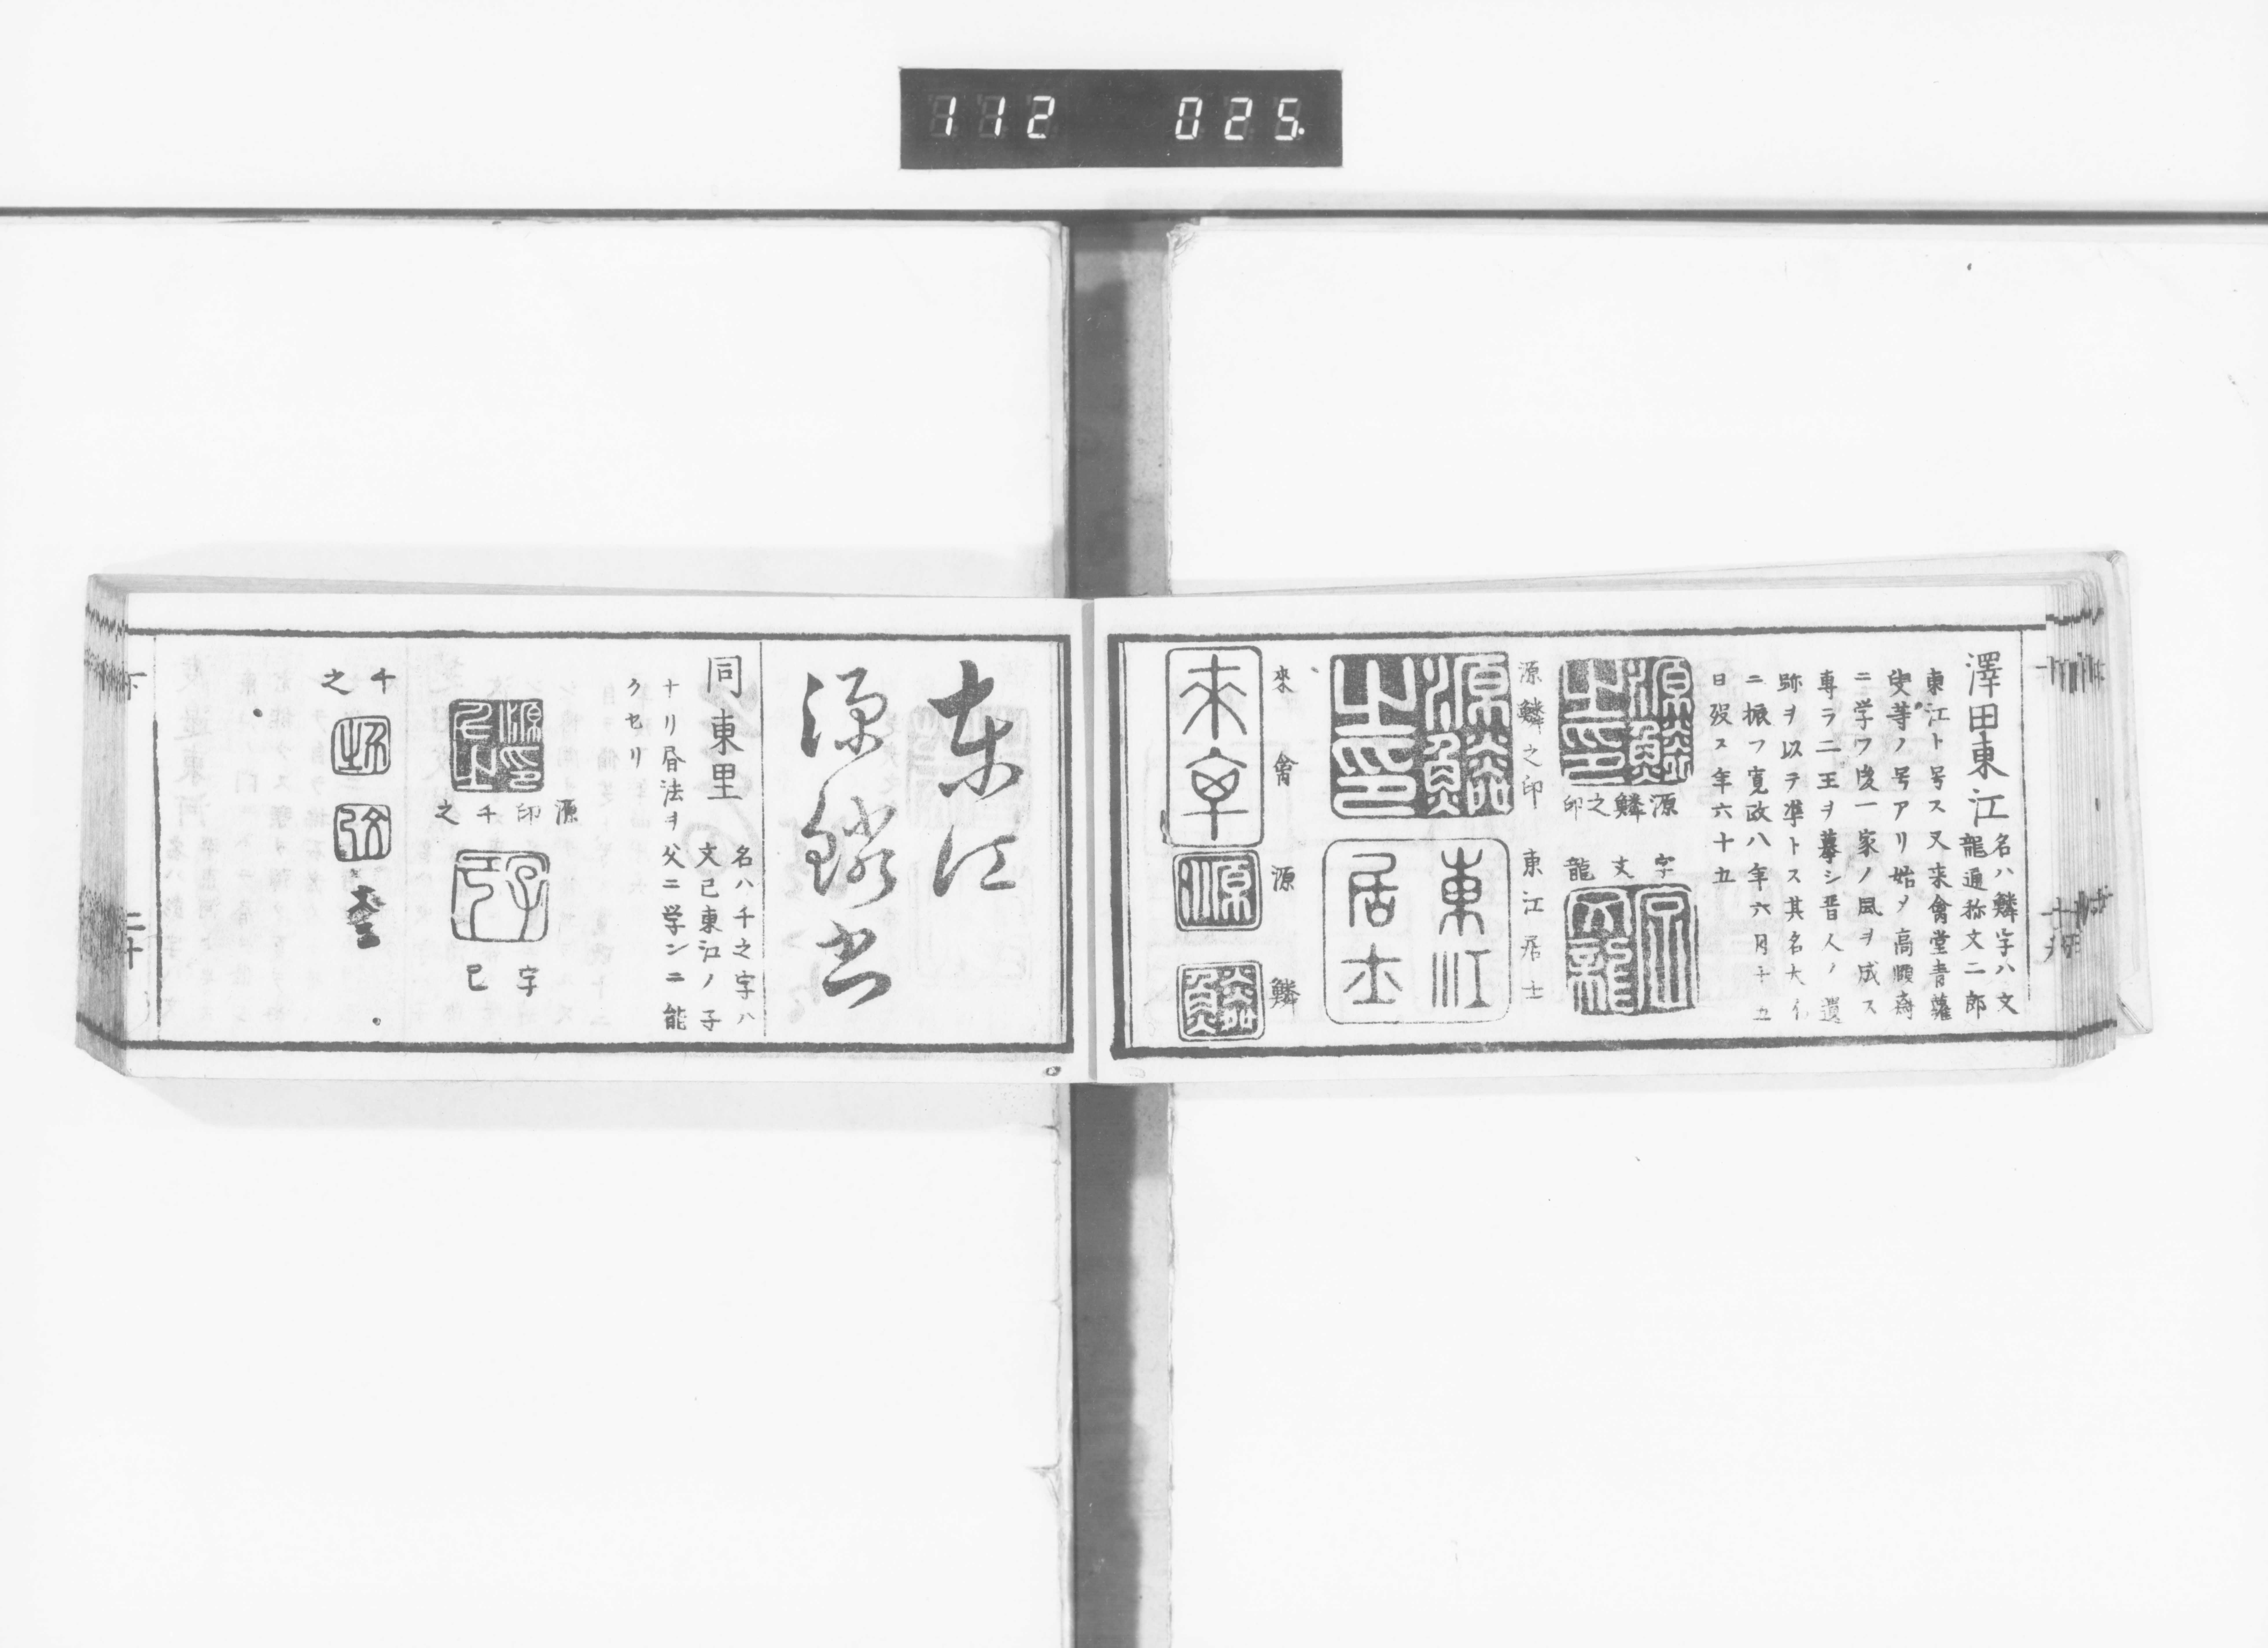 112 025
澤田東江
名ハ鱗字ハ文
龍通称文二郎
東江ト号ス又来禽堂青蘿
叟等ノ号アリ始メ高頤斎
ニ学フ後一家ノ風ヲ成ス
専ラ二王ヲ摹シ晋人ノ遺
跡ヲ以テ準トス其名大イ
ニ振フ寛政八年六月十五
日歿ス年六十五
源鱗之印
字文龍
源鱗之印
東江居士
東江居士
來禽
源
鱗
東江
源鱗書
同東里
名ハ千之字ハ
文已東江ノ子
ナリ昏法ヲ父ニ学ンニ能
クセリ
源印千之
字已
千之
下
二十